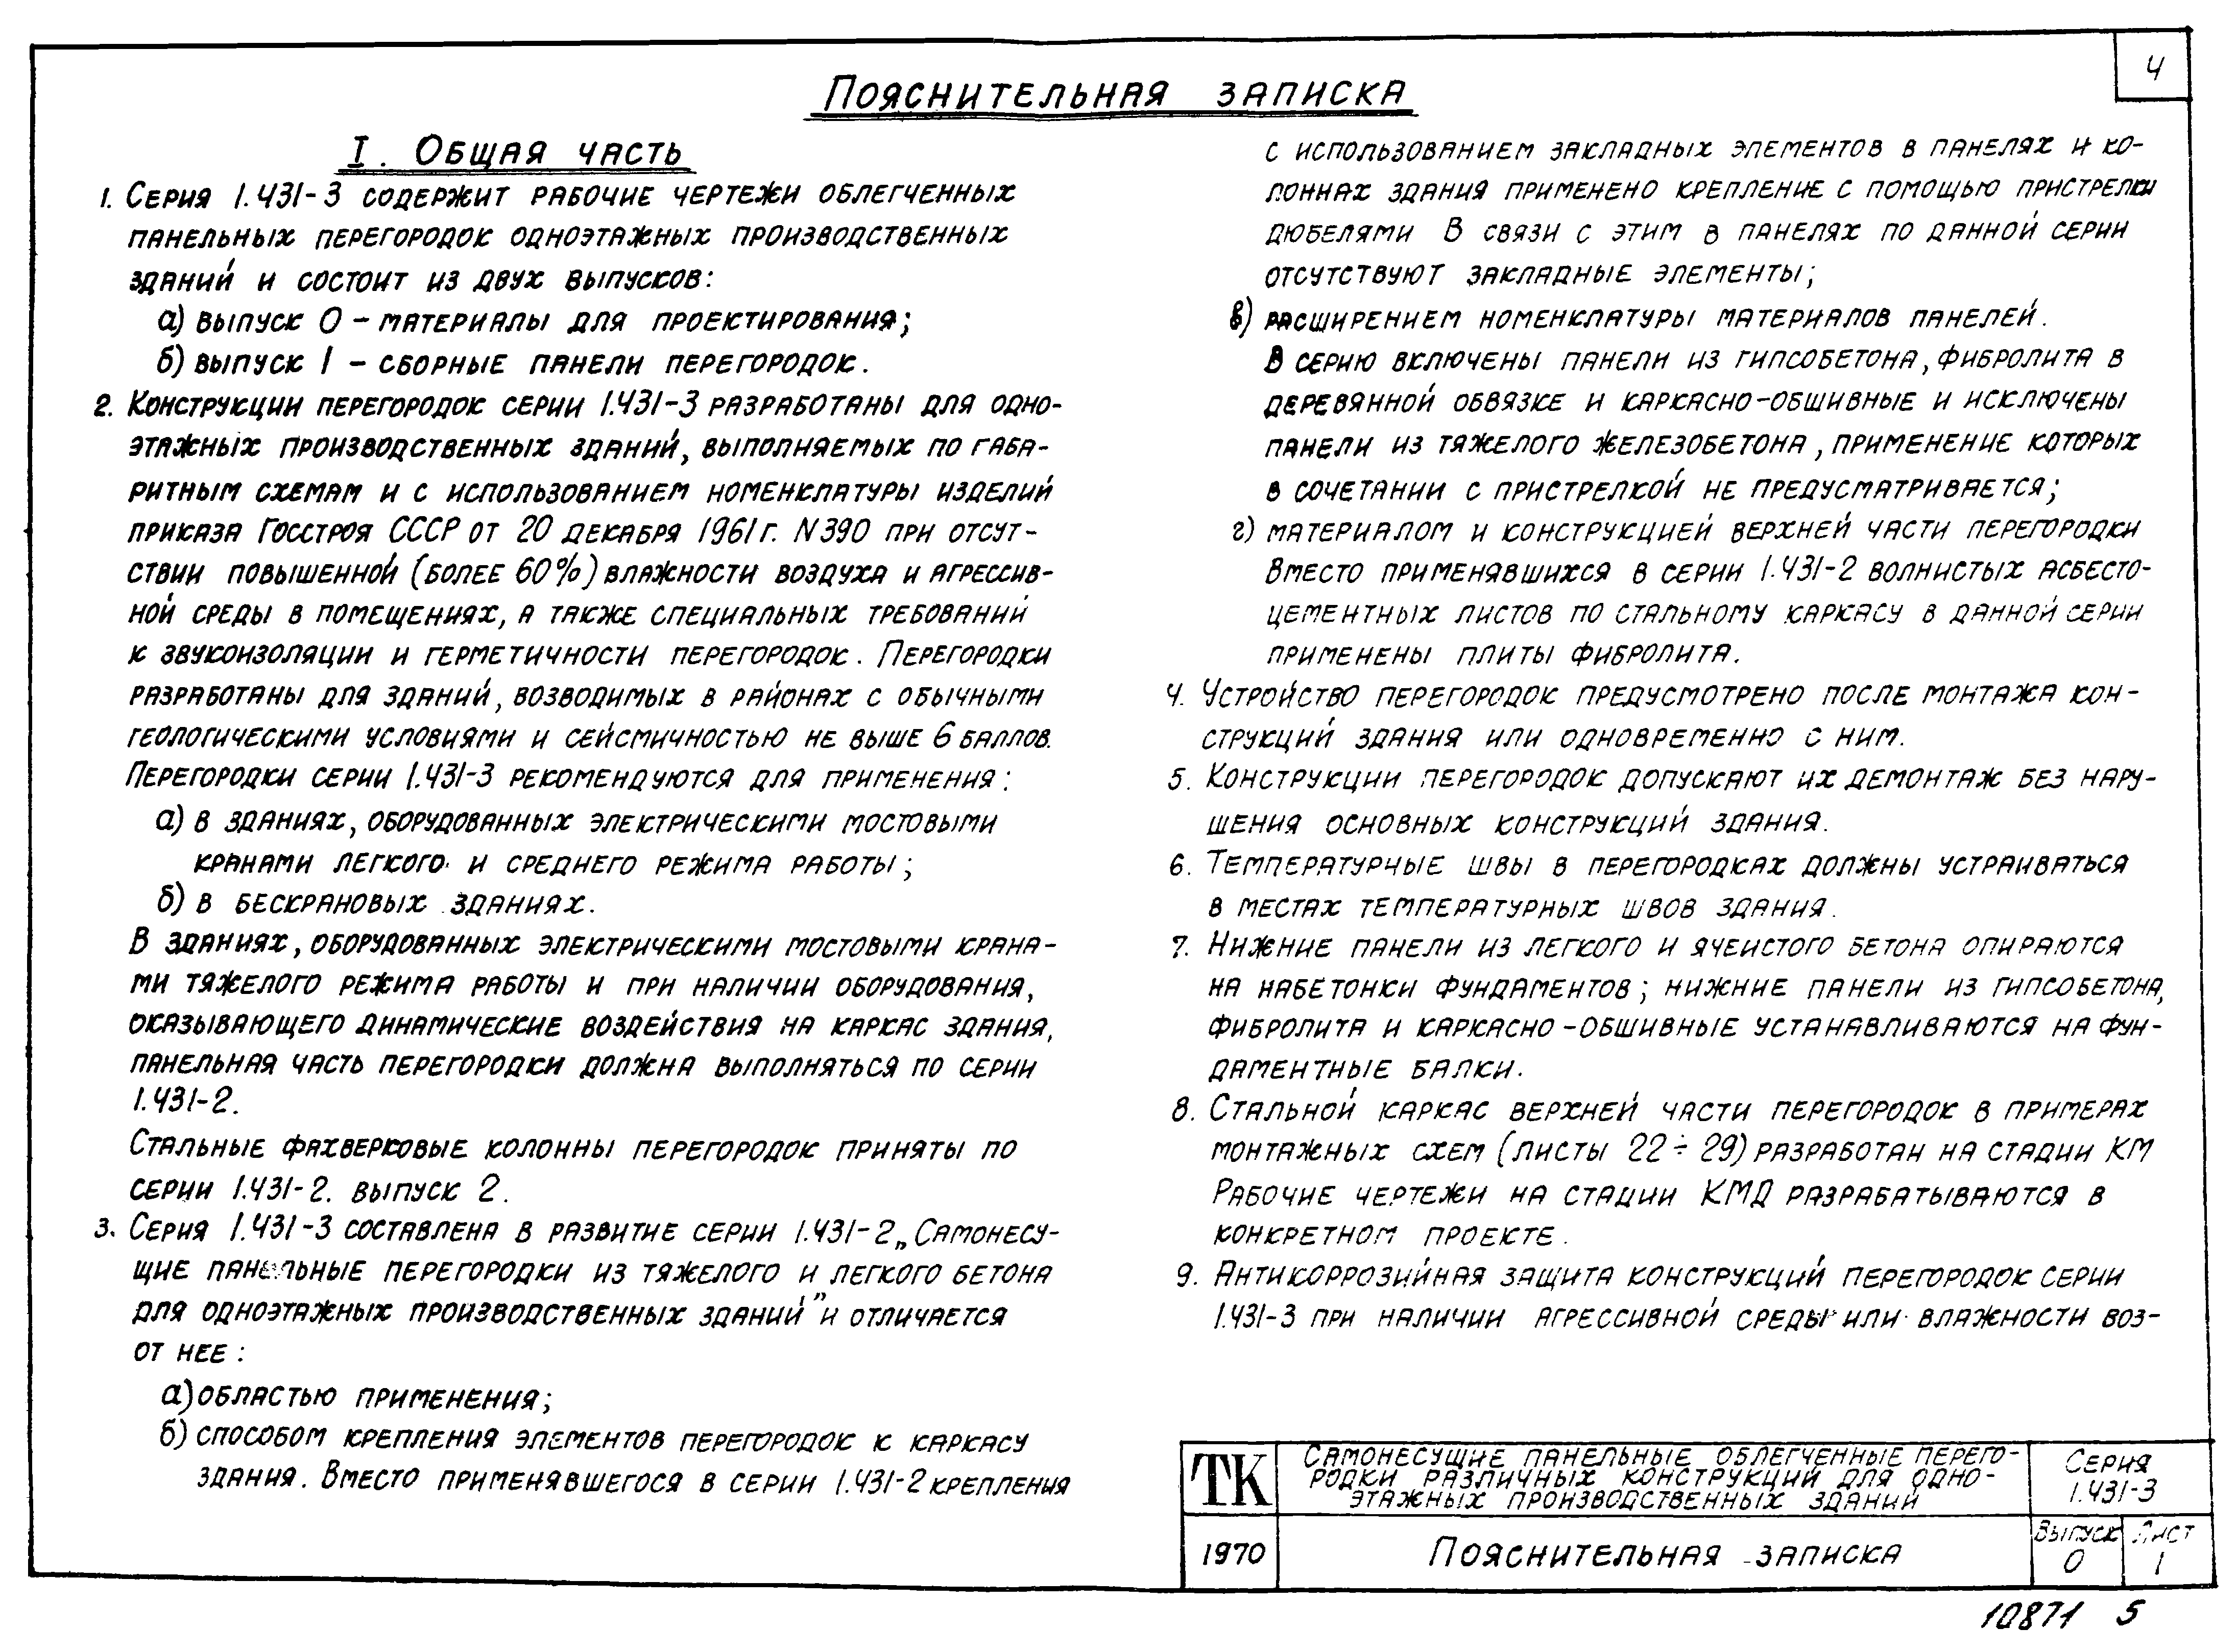 4
Пояснительная записка
I. Общая часть
1. Серия 1.431-3 содержит рабочие чертежи облегченных
панельных перегородок одноэтажных производственных
зданий и состоит из двух выпусков:
а) выпуск 0 – материалы для проектирования;
б) выпуск 1 – сборные панели перегородок.
2. Конструкции перегородок серии 1.431-3 разработаны для одно-
этажных производственных зданий, выполняемых по габа-
ритным схемам и с использованием номенклатуры изделий
приказа Госстроя СССР от 20 декабря 1961г. N390 при отсут-
ствии повышенной (более 60%) влажности воздуха и агрессив-
ной среды в помещениях, а также специальных требований
к звукоизоляции и герметичности перегородок. Перегородки
разработаны для зданий, возводимых в районах с обычными
геологическими условиями и сейсмичностью не выше 6 баллов.
Перегородки серии 1.431-3 рекомендуются для применения:
а) в зданиях, оборудованных электрическими мостовыми
кранами легкого и среднего режима работы;
б) в бескрановых зданиях.
В зданиях, оборудованных электрическими мостовыми крана-
ми тяжелого режима работы и при наличии оборудования,
оказывающего динамические воздействия на каркас здания,
панельная часть перегородки должна выполняться по серии
1.431-2.
Стальные фахверковые колонны перегородок приняты по
серии 1.431-2. выпуск 2.
3. Серия 1.431-3 составлена в развитие серии 1.431-2 „Самонесу-
щие панельные перегородки из тяжелого и легкого бетона
для одноэтажных производственных зданий" и отличается
от нее:
а) областью применения;
б) способом крепления элементов перегородок к каркасу
здания. Вместо применявшегося в серии 1.431-2 крепления
с использованием закладных элементов в панелях и ко-
лоннах здания применено крепление с помощью пристрелки
дюбелями В связи с этим в панелях по данной серии
отсутствуют закладные элементы;
в) расширением номенклатуры материалов панелей.
В серию включены панели из гипсобетона, фибролита в
деревянной обвязке и каркасно-обшивные и исключены
панели из тяжелого железобетона, применение которых
в сочетании с пристрелкой не предусматривается;
г) материалом и конструкцией верхней части перегородки
Вместо применявшихся в серии 1.431-2 волнистых асбесто-
цементных листов по стальному каркасу в данной серии
применены плиты фибролита.
4. Устройство перегородок предусмотрено после монтажа кон-
струкций здания или одновременно с ним.
5. Конструкции перегородок допускают их демонтаж без нару-
шения основных конструкций здания.
6. Температурные швы в перегородках должны устраиваться
в местах температурных швов здания.
7. Нижние панели из легкого и ячеистого бетона опираются
на набетонки фундаментов; нижние панели из гипсобетона,
фибролита и каркасно-обшивные устанавливаются на фун-
даментные балки.
8. Стальной каркас верхней части перегородок в примерах
монтажных схем (листы 22÷29) разработан на стадии КМ
Рабочие чертежи на стадии КМД разрабатываются в
конкретном проекте.
9. Антикоррозийная защита конструкций перегородок серии
1.431-3 при наличии агрессивной среды или влажности воз-
ТК
Самонесущие панельные облегченные перего-
родки различных конструкций для одно-
этажных производственных зданий
Серия
1.431-3
1970
Пояснительная записка
Выпуск
0
Лист
1
10871 5